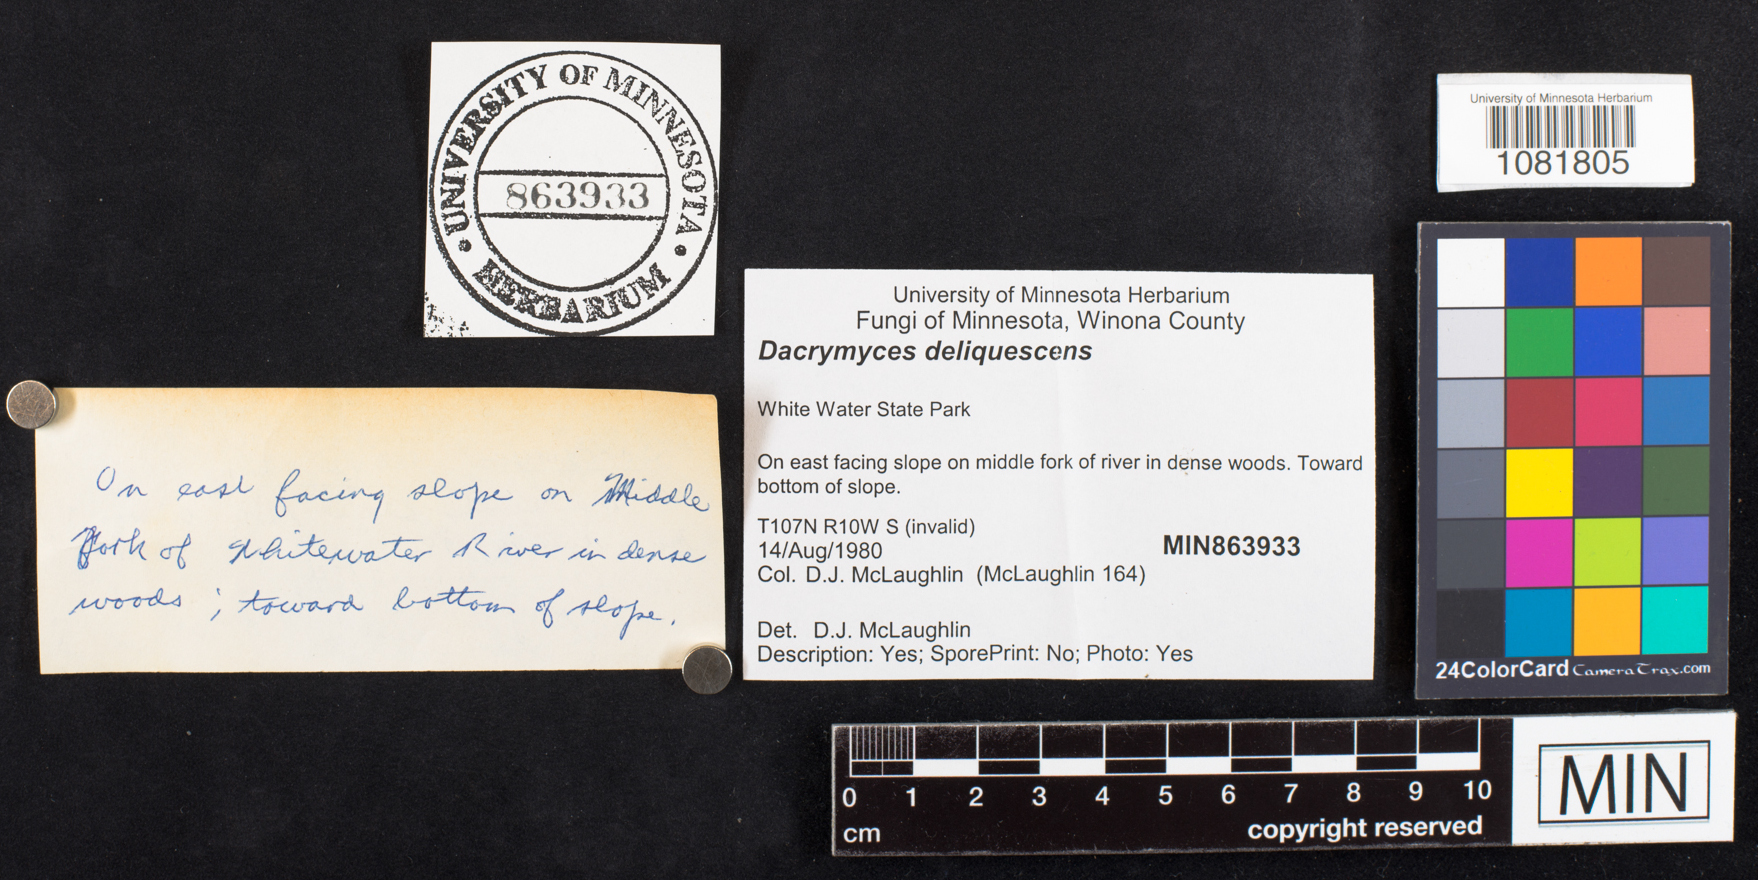 UNIVERSITY OF MINNESOTA
863933
• HERBARIUM •
University of Minnesota Herbarium
1081805
University of Minnesota Herbarium
Fungi of Minnesota, Winona County
Dacrymyces deliquescens
White Water State Park
On east facing slope on middle fork of river in dense woods. Toward
bottom of slope.
T107N R10W S (invalid)
14/Aug/1980
MIN863933
Col. D.J. McLaughlin (McLaughlin 164)
Det. D.J. McLaughlin
Description: Yes; SporePrint: No; Photo: Yes
On east facing slope on Middle
Fork of Whitewater River in dense
woods ; toward bottom of slope.
24ColorCard CameraTrax.com
0 1 2 3 4 5 6 7 8 9 10
cm
copyright reserved
MIN